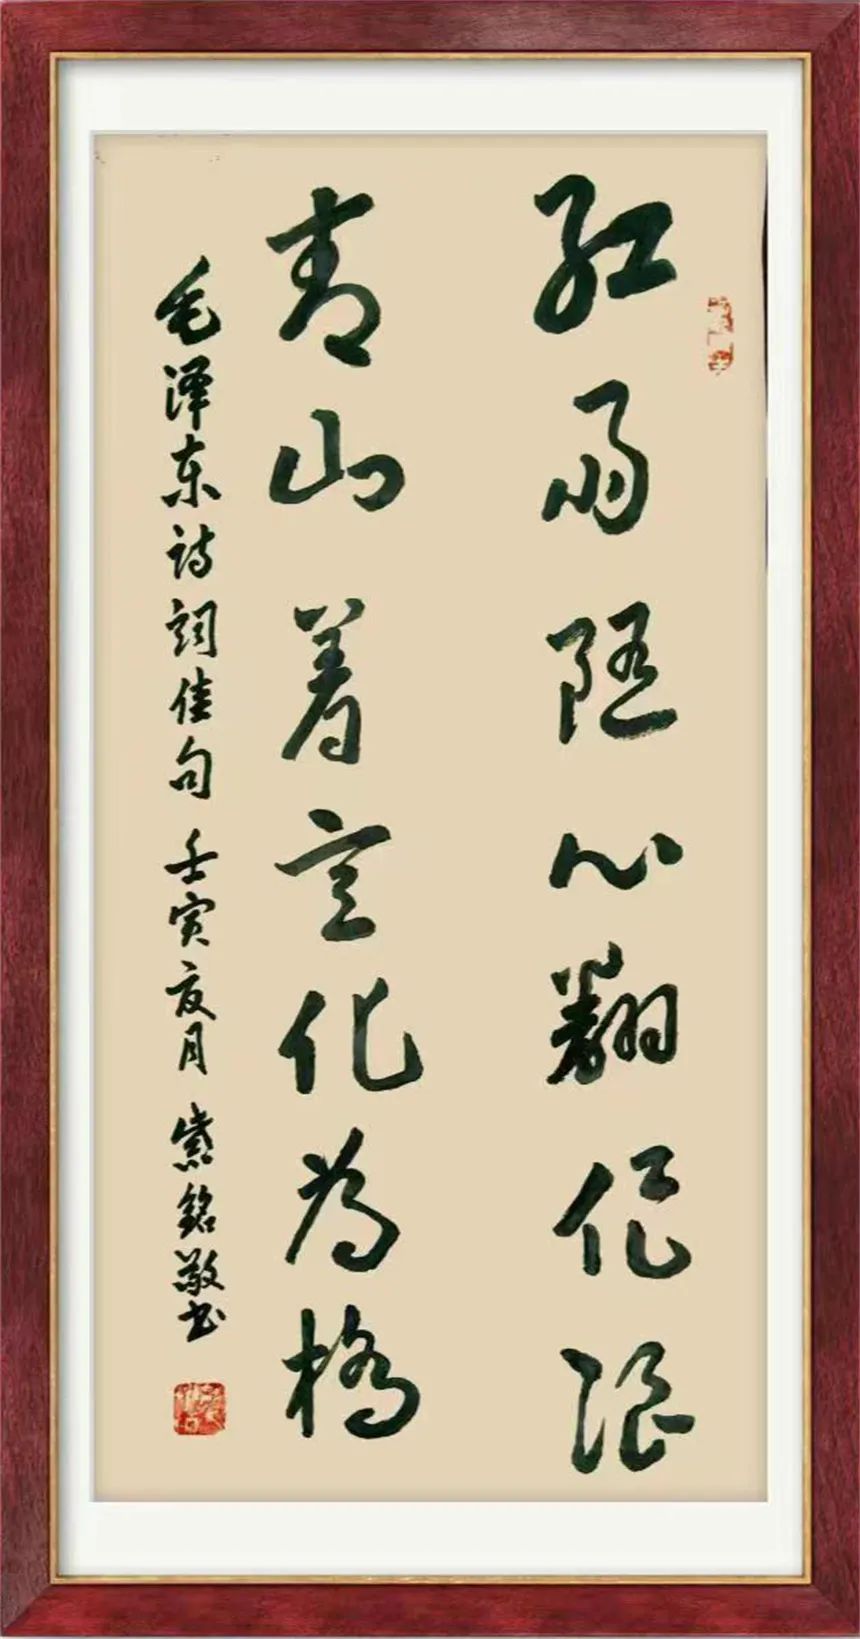 红雨随心翻作浪
青山着意化为橋
毛泽东诗词佳句 壬寅夏月 紫铭敬书